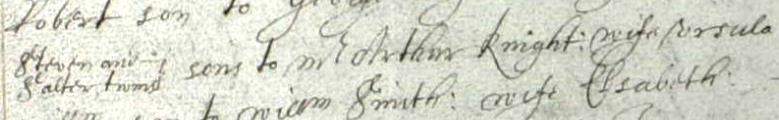 Robert son to Georg
Steven and
Salter twins } sons to mr Arthur Knight: wife Vrsula
to Willm Smith: wife Elsabeth: